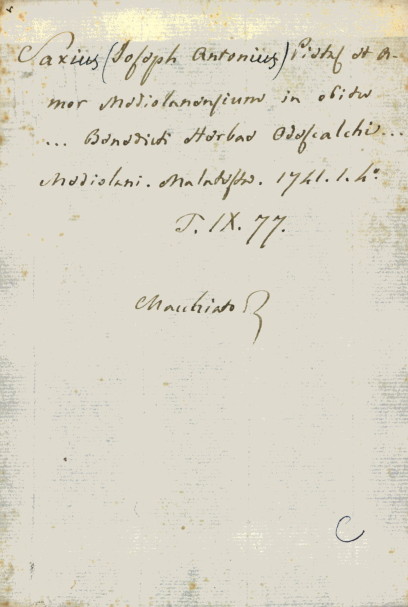 Saxius (Joseph Antonius) Pietas et A-
mor Mediolanensium in obitu
... Benedicti Herbae Odescalchi...
Mediolani. Malatesta. 1741. 1. 4º
T. IX. 77.
Macchiato
C